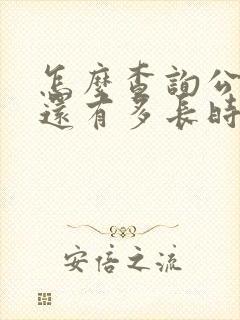 怎麼查詢公
還有多長時
安倍之流